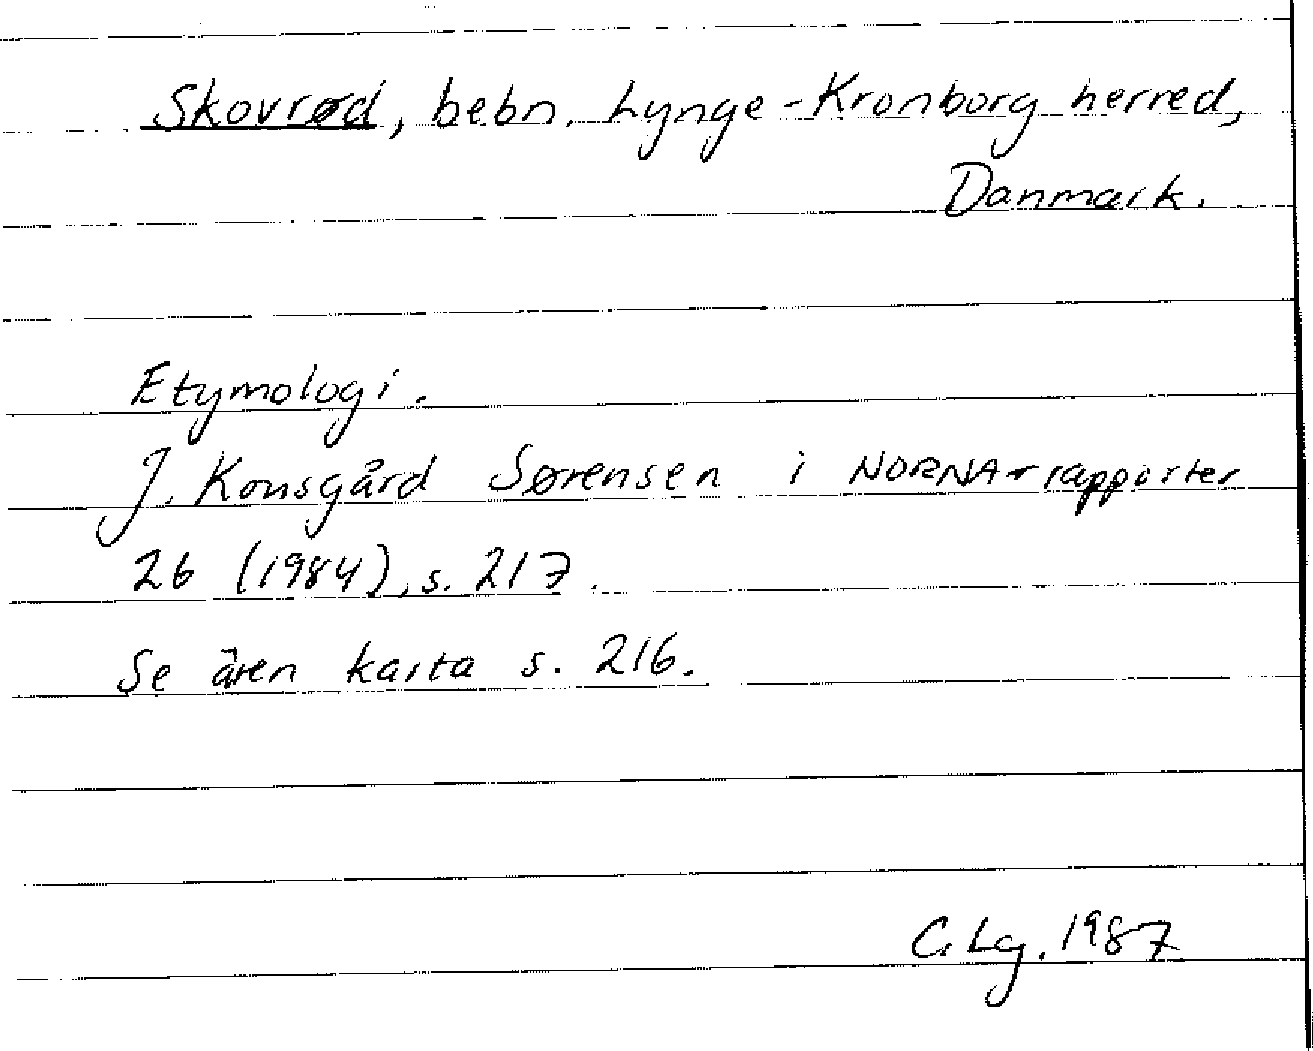 Skovrød, bebn. Lynge-Kronborg herred,
Danmark.
Etymologi.
J. Kousgård Sørensen i NORNA-rapporter
26 (1984), s. 217.
Se även karta s. 216.
C. Lg. 1987